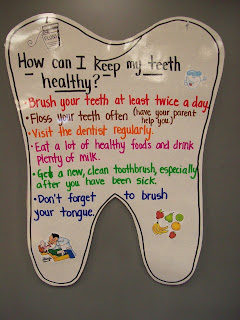 How can I keep my teeth
healthy?
Brush your teeth at least twice a day.
• Floss your teeth often (have your parent
help you.)
• Visit the dentist regularly.
• Eat a lot of healthy foods and drink
plenty of milk.
• Get a new, clean toothbrush, especially
after you have been sick.
• Don't forget to brush
your tongue.